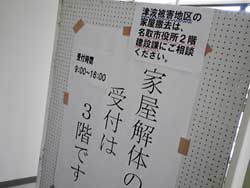 津波被害地区の
家屋撤去は、
名取市役所2階
建設課にご相談
ください。
受付時間
9:00~16:00
家屋解体の
受付は
3階です